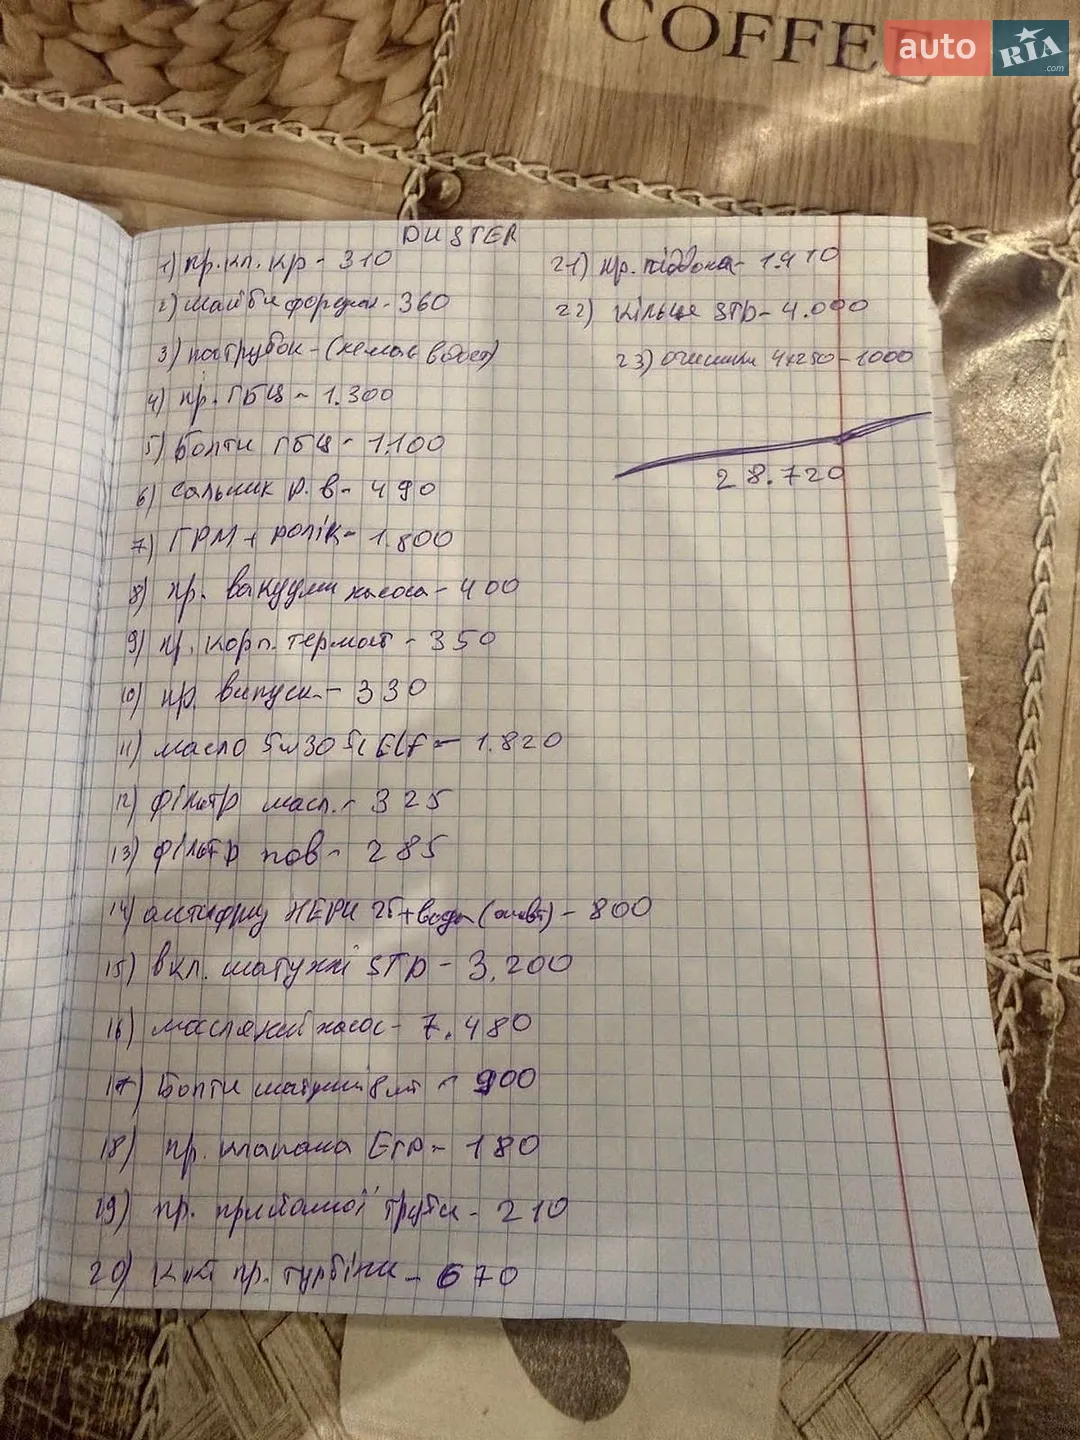 COFFEE
auto RIA.com
DUSTER
1) пр.кл.кр - 310
2) шайби форсун - 360
3) патрубок - (немає в дост)
4) пр. ГБЦ - 1.300
5) Болти ГБЦ - 1.100
6) сальник р.в - 490
7) ГРМ + ролік - 1.800
8) пр. вакуумн насоса - 400
9) пр. корп. термост - 350
10) пр. випуск - 330
11) масло 5w30 5L Elf - 1.820
12) фільтр масл. - 325
13) фільтр пов - 285
14) антифриз HEPU + вода - 800
15) вкл. шатунні STD - 3.200
16) масляний насос - 7.480
17) Болти шатунні 8 шт - 900
18) пр. клапана ЕГР - 180
19) пр. прийомної труби - 210
20) к-кт пр. турбіни - 670
21) пр. піддона - 1.410
22) кільце STD - 4.000
23) 4x250 - 1000
28.720